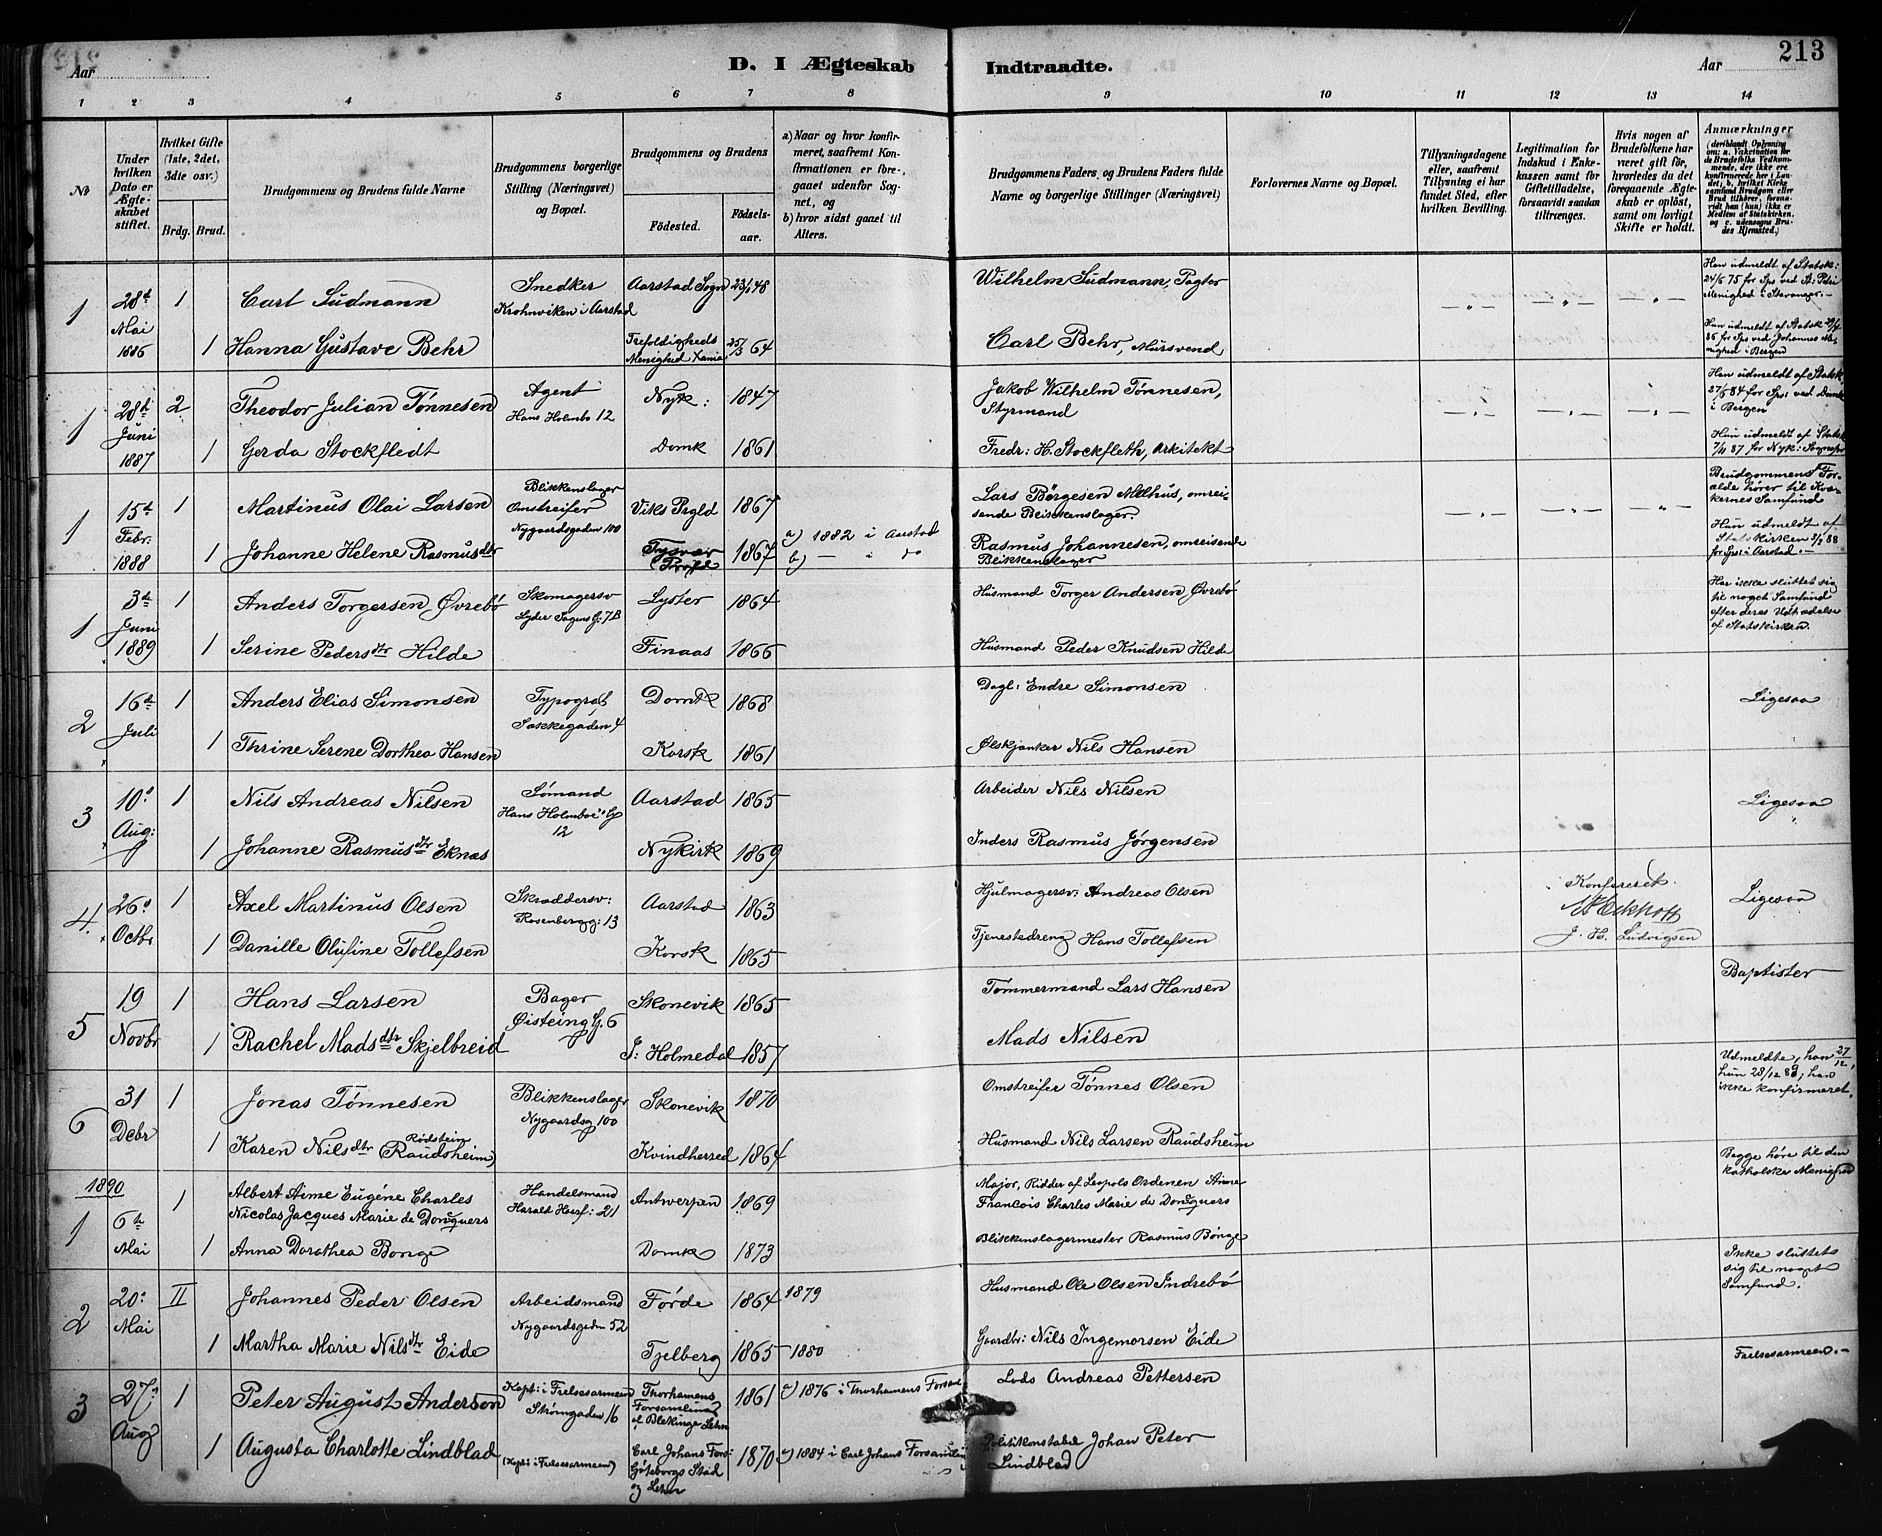 213
Aar
D. I Ægteskab Indtraadte.
Aar
1 2 3 4 5 6 7 8 9 10 11 12 13 14
№
Under hvilken Dato er Ægteskabet stiftet.
Hvilket Gifte (1ste, 2det, 3die osv.)
Brdg. Brud.
Brudgommens og Brudens fulde Navne
Brudgommens borgerlige Stilling (Næringsvei) og Bopæl.
Brudgommens og Brudens
Fødested.
Fødselsaar.
a) Naar og hvor konfirmeret, saafremt Konfirmationen er foregaaet udenfor Sognet, og
b) hvor sidst gaaet til Alters.
Brudgommens Faders og Brudens Faders fulde Navne og borgerlige Stillinger (Næringsvei)
Forlovernes Navne og Bopæl.
Tillysningsdagene eller, saafremt Tillysning ei har fundet Sted, efter hvilken Bevilling.
Legitimation for Indskud i Enkekassen samt for Giftetilladelse, forsaavidt saadan tiltrænges.
Hvis nogen af Brudefolkene har været gift før, hvorledes da det foregaaende Ægteskab er opløst, samt om lovligt Skifte er holdt.
Anmærkninger
1 28de Mai 1886 1 Carl Sudmann Snedker Krohnviken i Aarstad Aarstad Sogn 23/1 48 Wilhelm Sudmann, Pagter Han udmeldt af Statsk: 24/6 75 for Sps ved St: Petri Menighed i Stavanger.
1 Hanna Gustave Behr Trefoldigheds Menighed Xania 25/3 64 Carl Behr, Mursvend Hun udmeldt af Statsk 86 for Sps ved Johannes Menighed i Bergen
1 28de Juni 1887 2 Theodor Julian Tønnesen Agent Hans Holmbo 12 Nyk: 1847 Jakob Wilhelm Tønnesen, Styrmand Han udmeldt af Statsk 27/5 84 for Sps: ved Domk i Bergen
1 Gerda Stockfledt Domk 1861 Fredr: H. Stockfleth, Arkitekt Hun udmeldt af Statsk 7/11 87 for Nyk: Sognepr
1 15de Febr. 1888 1 Martinus Olai Larsen Blikkenslager Omstreifer Nygaardsgaden 100 Viks Prgld 1867 Lars Børgesen Mælhus, omreisende Blikkenslager. Brudgommens Forælde hører til Kvækernes Samfund
1 Johanne Helene Rasmusdtr Tysvær Prgld 1867 a) 1882 i Aarstad b) — i do Rasmus Johannesen, omreisende Blikkenslager Hun udmeldt af Statskirken 3/2 88 for Sps: i Aarstad.
1 3de Juni 1889 1 Anders Torgersen Øvrebø Skomagersv Lyder Sagens G. 7B Lyster 1864 Husmand Torger Andersen Øvrebø Har ikke sluttet sig til noget Samfund efter deres Udtrædelse af Statskirken.
1 Serine Pedersdtr Hilde Finaas 1866 Husmand Peder Knudsen Hilde
2 16de Juli 1 Anders Elias Simonsen Typograf Sakkegaden 4 Domk 1868 Dagl: Endre Simonsen Ligesaa
1 Thrine Serene Dorthea Hansen Korsk 1861 Ølskjænker Nils Hansen
3 10de Aug: 1 Nils Andreas Nilsen Sømand Hans Holmboes G 12 Aarstad 1865 Arbeider Nils Nilsen Ligesaa
1 Johanne Rasmusdtr Eknæs Nykirk 1869 Inders Rasmus Jørgensen
4. 26de Octbr 1 Axel Martinus Olsen Skræddersv: Rosenbergg: 13 Aarstad 1863 Hjulmagersv: Andreas Olsen Konfereret. Eckhoff J. H. Ludvigsen Ligesaa
1 Danille Olufine Tollefsen Korsk 1865 Tjenestedreng Hans Tollefsen
5 19 Novbr 1 Hans Larsen Bager Øisteins G. 6 Skonevik 1865 Tømmermand Lars Hansen Baptister
1 Rachel Madsdtr Skjelbreid I: Holmedal 1857 Mads Nilsen
6 31 Debr 1 Jonas Tønnesen Blikkenslager Nygaardsg 100 Skonevik 1870 Omstreifer Tønnes Olsen Udmeldte, han 27/12, hun 28/12 89; han ikke konfirmeret.
1 Karen Nilsdtr Rødstein (Raudsheim) Kvindherred 1864 Husmand Nils Larsen Raudsheim
1890
1 6te Mai 1 Albert Aime Eugéne Charles Nicolas Jacques Marie de Doncquers Handelsmand Harald Haarf: 21 Antwerpen 1869 Major, Ridder af Leopols Ordenen Aime Francois Charles Marie de Doncquers Begge høre til den katholske Menighed
1 Anna Dorothea Bønge Domk 1873 Blikkenslagermester Rasmus Bønge
2 20de Mai II Johannes Peder Olsen Arbeidsmand Nygaardsgaden 52 Førde 1864 1879 Husmand Ole Olsen Indrebø Ikke sluttet sig til noget Samfund.
1 Martha Marie Nilsdtr Eide Fjelberg 1865 1880 Gaardbr: Nils Ingemorsen Eide
3 27de Aug 1 Peter August Anderson Kapt: i Frelsesarmeen Strømgaden 16 Thorhamens Forsamling af Blekinge Lehn 1861 a) 1876 i Thorhamens Forsaml Lods Andreas Pettersen Frelsesarmeen.
1 Augusta Charlotte Lindblad (Kapt: i Frelsesarmeen) Carl Johans Fors: Göteborgs Stad og Lehn 1870 a) 1884 i Carl Johans Forsamling Politikonstabel Johan Peter Lindblad